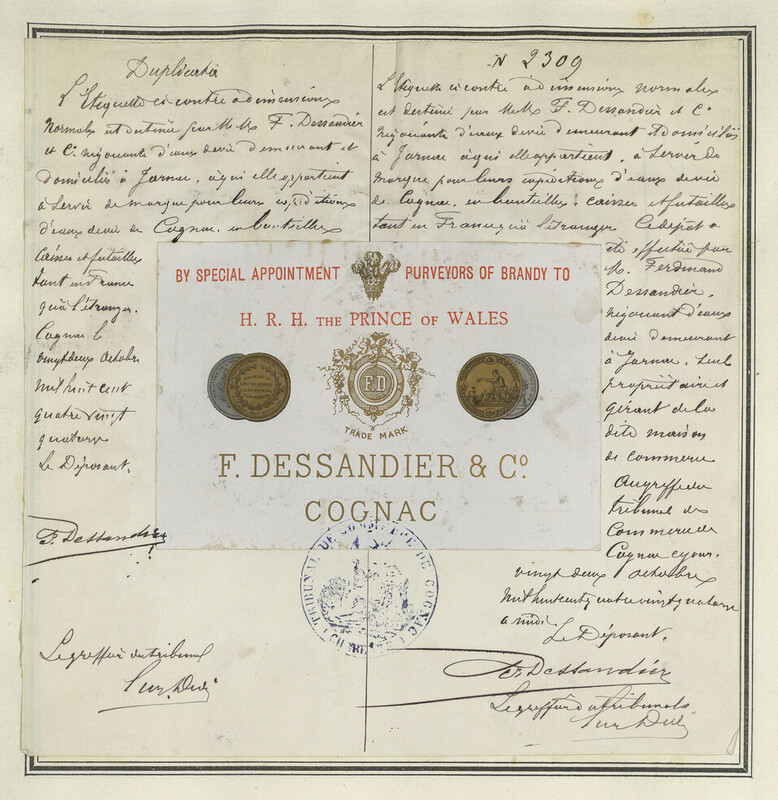 Duplicata
L'Etiquette ci contre a dimensions
normales est destinée par M. Mrs F. Dessandier
et Cº négociants d'eaux de vie demeurant et
domiciliés à Jarnac, à qui elle appartient
à servir de marque pour leurs expéditions
d'eaux de vie de Cognac, en bouteilles
caisses et futailles
tant en France
qu'à l'étranger.
Cognac le
vingt deux octobre
mil huit cent
quatre vingt
quatorze
Le Déposant.
F. Dessandier
Le greffier du tribunal
N 2309
L'Etiquette ci contre à dimensions normales
est destinée par M. Mrs F. Dessandier et Cº
négociants d'eaux de vie demeurant et domiciliés
à Jarnac à qui elle appartient, à servir de
marque pour leurs expéditions d'eaux de vie
de Cognac, en bouteilles, caisses et futailles
tant en France qu'à l'étranger. Ce dépôt a
été effectué par
M. Ferdinand
Dessandier,
négociant d'eaux
de vie demeurant
à Jarnac, seul
propriétaire et
gérant de la
dite maison
de commerce
au greffe du
tribunal de
Commerce de
Cognac ce jour
vingt deux octobre
mil huit cent quatre vingt quatorze
a midi.
Le Déposant.
F. Dessandier
Le greffier du tribunal
BY SPECIAL APPOINTMENT PURVEYORS OF BRANDY TO
H. R. H. THE PRINCE OF WALES
F.D
TRADE MARK
F. DESSANDIER & Cº
COGNAC
TRIBUNAL DE COMMERCE DE COGNAC